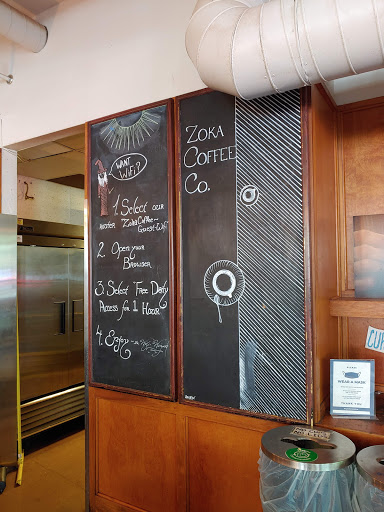 WANT
WiFi?
1. Select our
router ZokaCoffee-
Guest-Wifi
2. Open your
Browser
3. Select "Free Daily
Access for 1 Hour
4. Enjoy
ZOKA
COFFEE
CO.
PLEASE
WEAR A MASK
THANK YOU
CUP